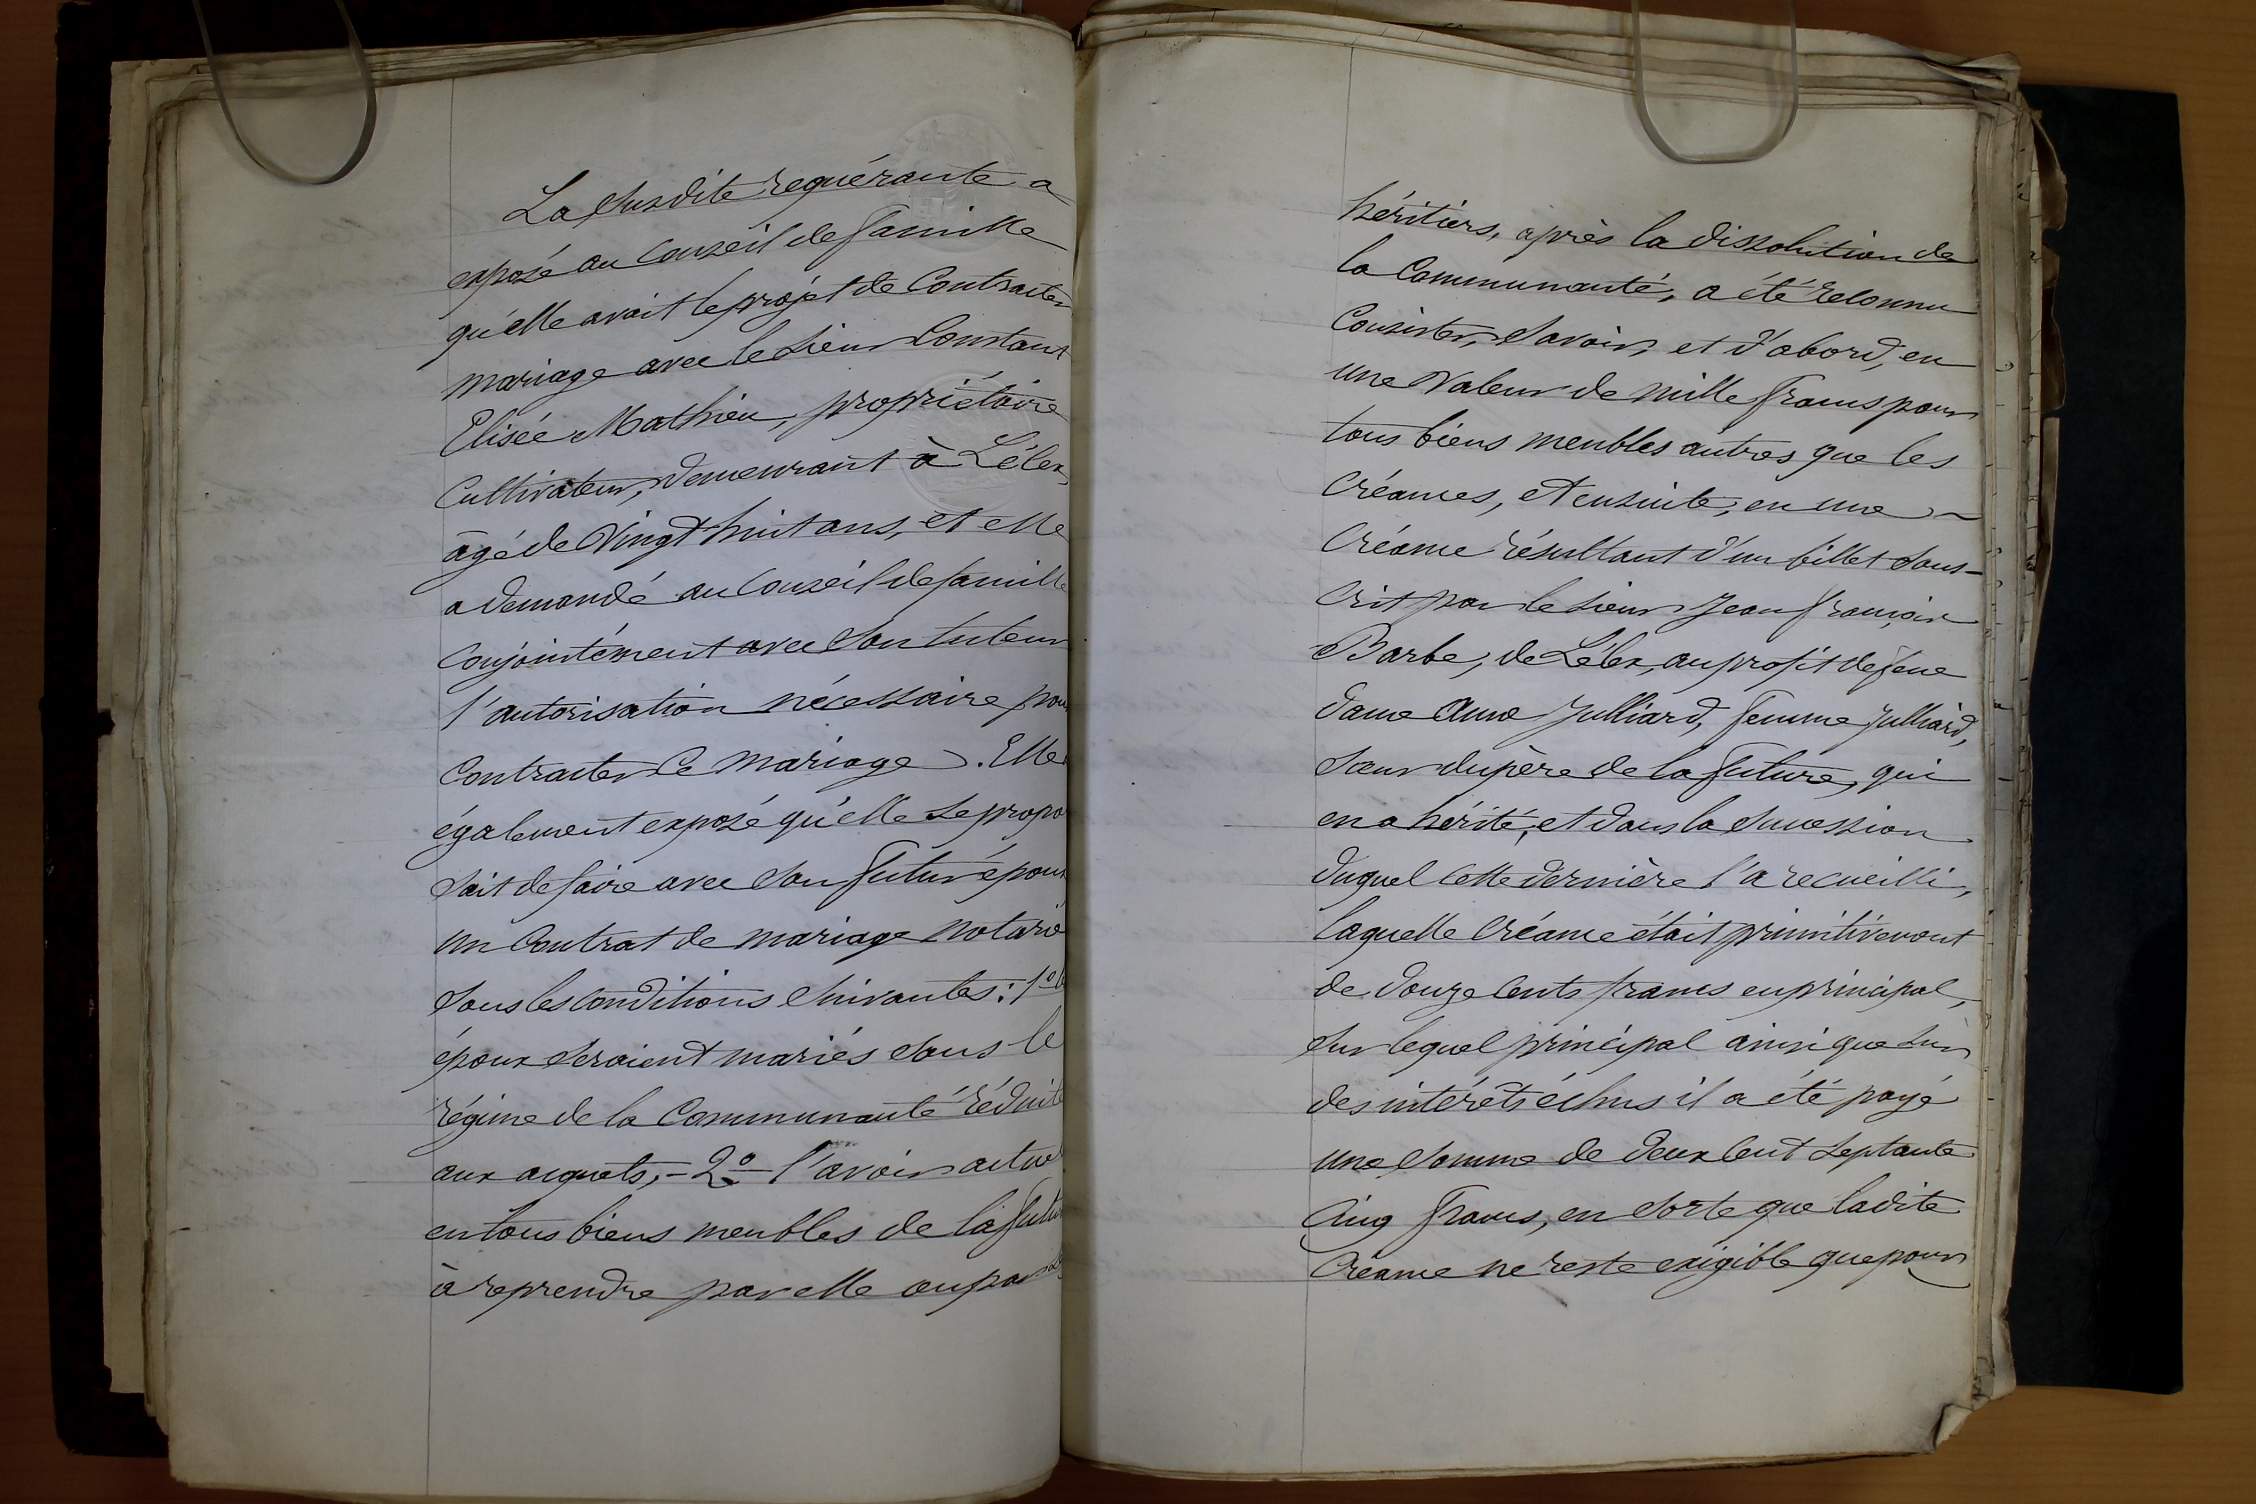 La susdite requérante a
exposé au Conseil de famille
qu'elle avait le projet de Contracter
mariage avec le sieur Constant
Elisée Mathieu, propriétaire
Cultivateur, demeurant à Lélex,
âgé de Vingt huit ans, et elle
a demandé au Conseil de famille
Conjointement avec son tuteur
l'autorisation nécessaire pour
Contracter ce mariage. Elle
également exposé qu'elle se propo
sait de faire avec son futur époux
un Contrat de mariage notarié
sous les conditions suivantes: 1º le
époux seraient mariés sous le
régime de la Communauté réduite
aux acquets, - 2º l'avoir actuel
en tous biens meubles de la future
à reprendre par elle ou par
héritiers, après la dissolution de
la Communauté, a été reconnu
Consister, savoir, et d'abord, en
une Valeur de mille francs pour
tous biens meubles autres que les
Créances, et ensuite, en une
Créance résultant d'un billet sous-
Crit par le sieur Jean françois
Barbe, de Lélex, au profit de feue
dame Anne Julliard, femme Julliard,
soeur du père de la future, qui
en a hérité, et dans la succession
duquel cette dernière l'a recueilli,
laquelle Créance était primitivement
de douze cents francs en principal,
sur lequel principal ainsi que sur
des intérêts échus il a été payé
une somme de deux cent septante
Cinq francs, en sorte que ladite
Créance ne reste exigible que pour